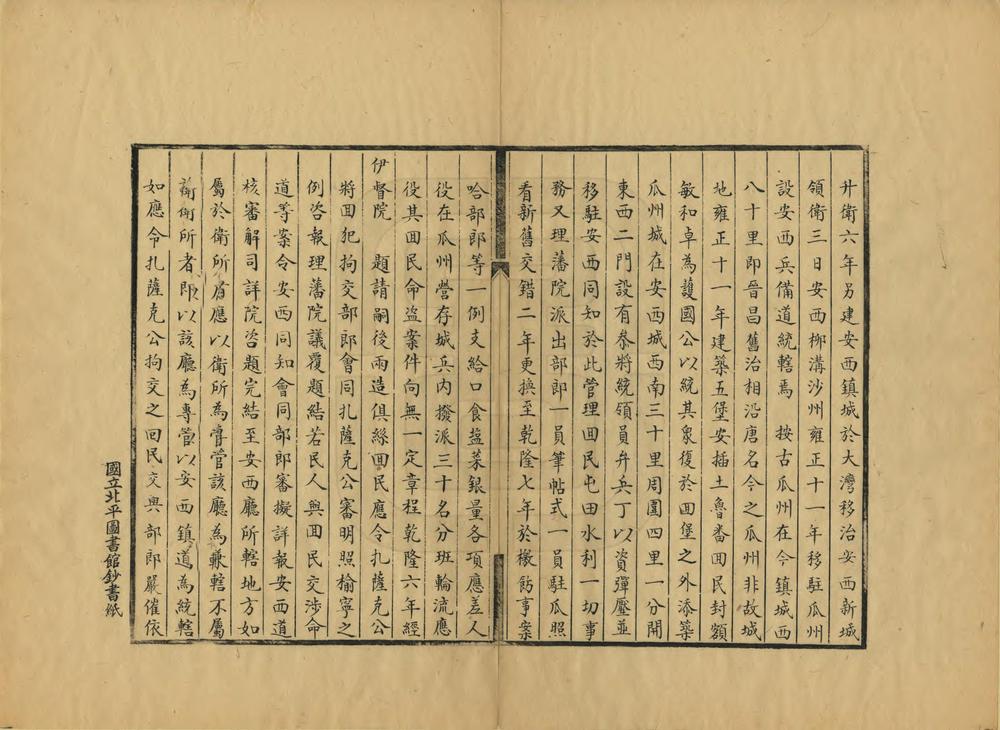 升衛六年另建安西鎮城於大灣移治安西新城
領衛三曰安西栁溝沙州雍正十一年移駐瓜州
設安西兵備道統轄焉　按古瓜州在今鎮城西
八十里即晉昌舊治相沿唐名今之瓜州非故城
地雍正十一年建築五堡安插土魯番囬民封額
敏和卓為護國公以統其衆復於囬堡之外添築
瓜州城在安西城西南三十里周圍四里一分開
東西二門設有叅將統領員弁兵丁以資彈壓並
移駐安西同知於此管理囬民屯田水利一切事
務又理藩院派出部郎一員筆帖式一員駐瓜照
看新舊交錯二年更換至乾隆七年於檄飭事案
哈部郎等一例支給口食鹽菜銀量各項應差人
役在瓜州營存城兵內撥派三十名分班輪流應
役其囬民命盜案件向無一定章程乾隆六年經
伊督院　題請嗣後兩造俱絲囬民應令扎薩克公
將囬犯拘交部郎會同扎薩克公審明照榆寧之
例咨報理藩院議覆題結若民人與囬民交涉命
道等案令安西同知會同部郎審擬詳報安西道
核審解司詳院咨題完結至安西廳所轄地方如
屬於衛所者應以衛所為管該廳為兼轄不屬
衛所者即以該廳為專管以安西鎮道為統轄
如應令扎薩克公拘交之囬民交與部郎嚴催依
國立北平圖書館鈔書紙